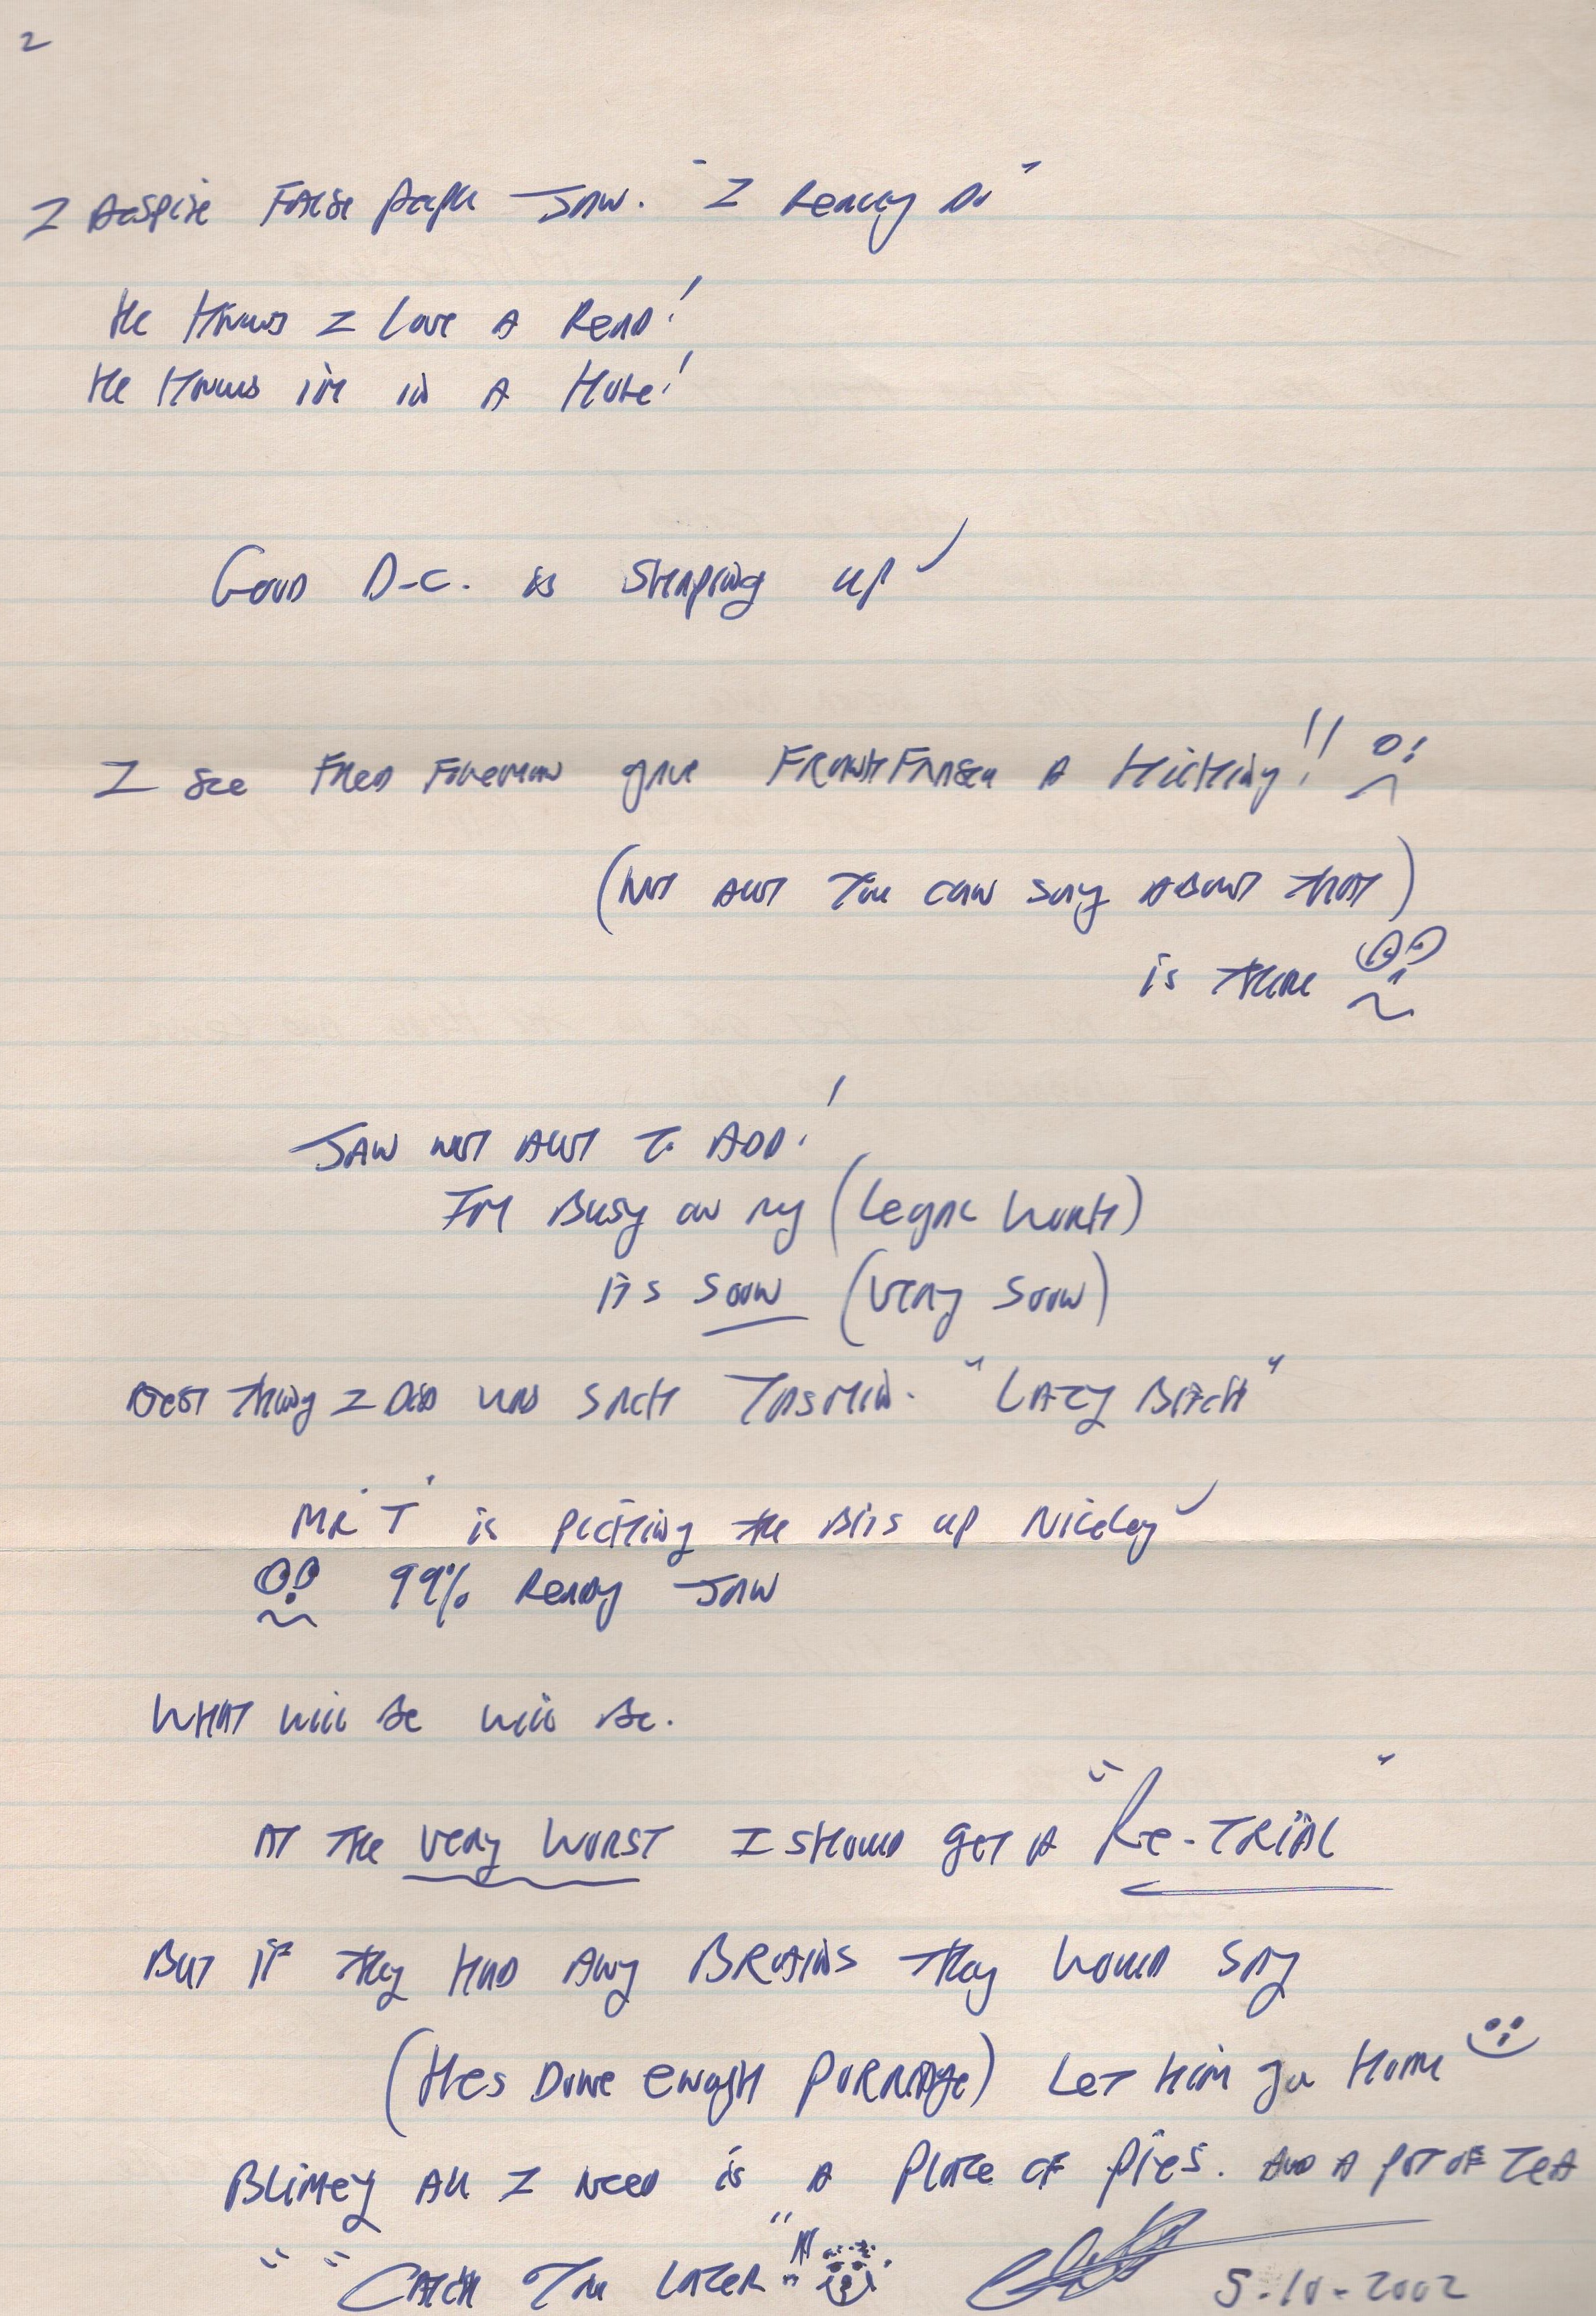 2
I Despise False people Jan. "I Really Do"
He Knows I Love A Read!
He Knows i'm in A Hole!
Good D-C. is Shaping up
I see Fred Foreman gave Frank Fraser A Kicking!!
(Not Alot You can say About that)
is there
Jan not Alot To ADD!
I'm Busy on my (Legal Work)
it's Soon (very Soon)
Best thing I Did was Sack Yasmin. "Lazy Bitch"
MR 'T' is picking the Bits up Niceley
99% Ready Jan
What will Be will Be.
At The very worst I should get A "Re-TRiAL"
But if they Had Any BRains they would say
(Hes Done enough Porridge) Let him go Home
Blimey All I need is A Plate of Pies. And A pot of Tea
"Catch You Later"
5-10-2002